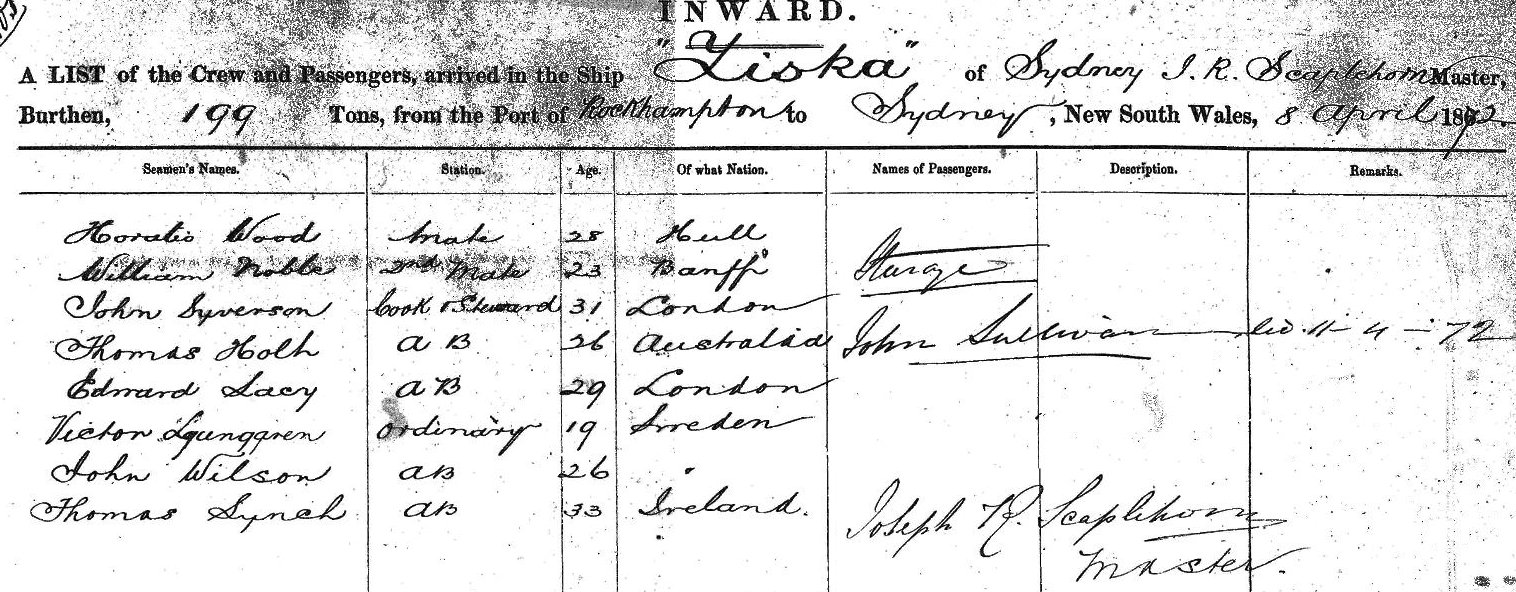 INWARD.
A LIST of the Crew and Passengers, arrived in the Ship "Ziska" of Sydney J. R. Scaplehorn Master,
Burthen, 199 Tons, from the Port of Rockhampton to Sydney, New South Wales, 8 April 1872.
Seamen's Names. Station. Age. Of what Nation. Names of Passengers. Description. Remarks.
Horatio Wood Mate 28 Hull
William Noble 2nd Mate 23 Banff Sturge
John Syverson Cook & Steward 31 London
Thomas Holh A B 26 Australia John Sullivan 11-4-72
Edward Lacy A B 29 London
Victor Ljunggren Ordinary 19 Sweden
John Wilson AB 26 "
Thomas Lynch AB 33 Ireland.
Joseph R. Scaplehorn
Master.